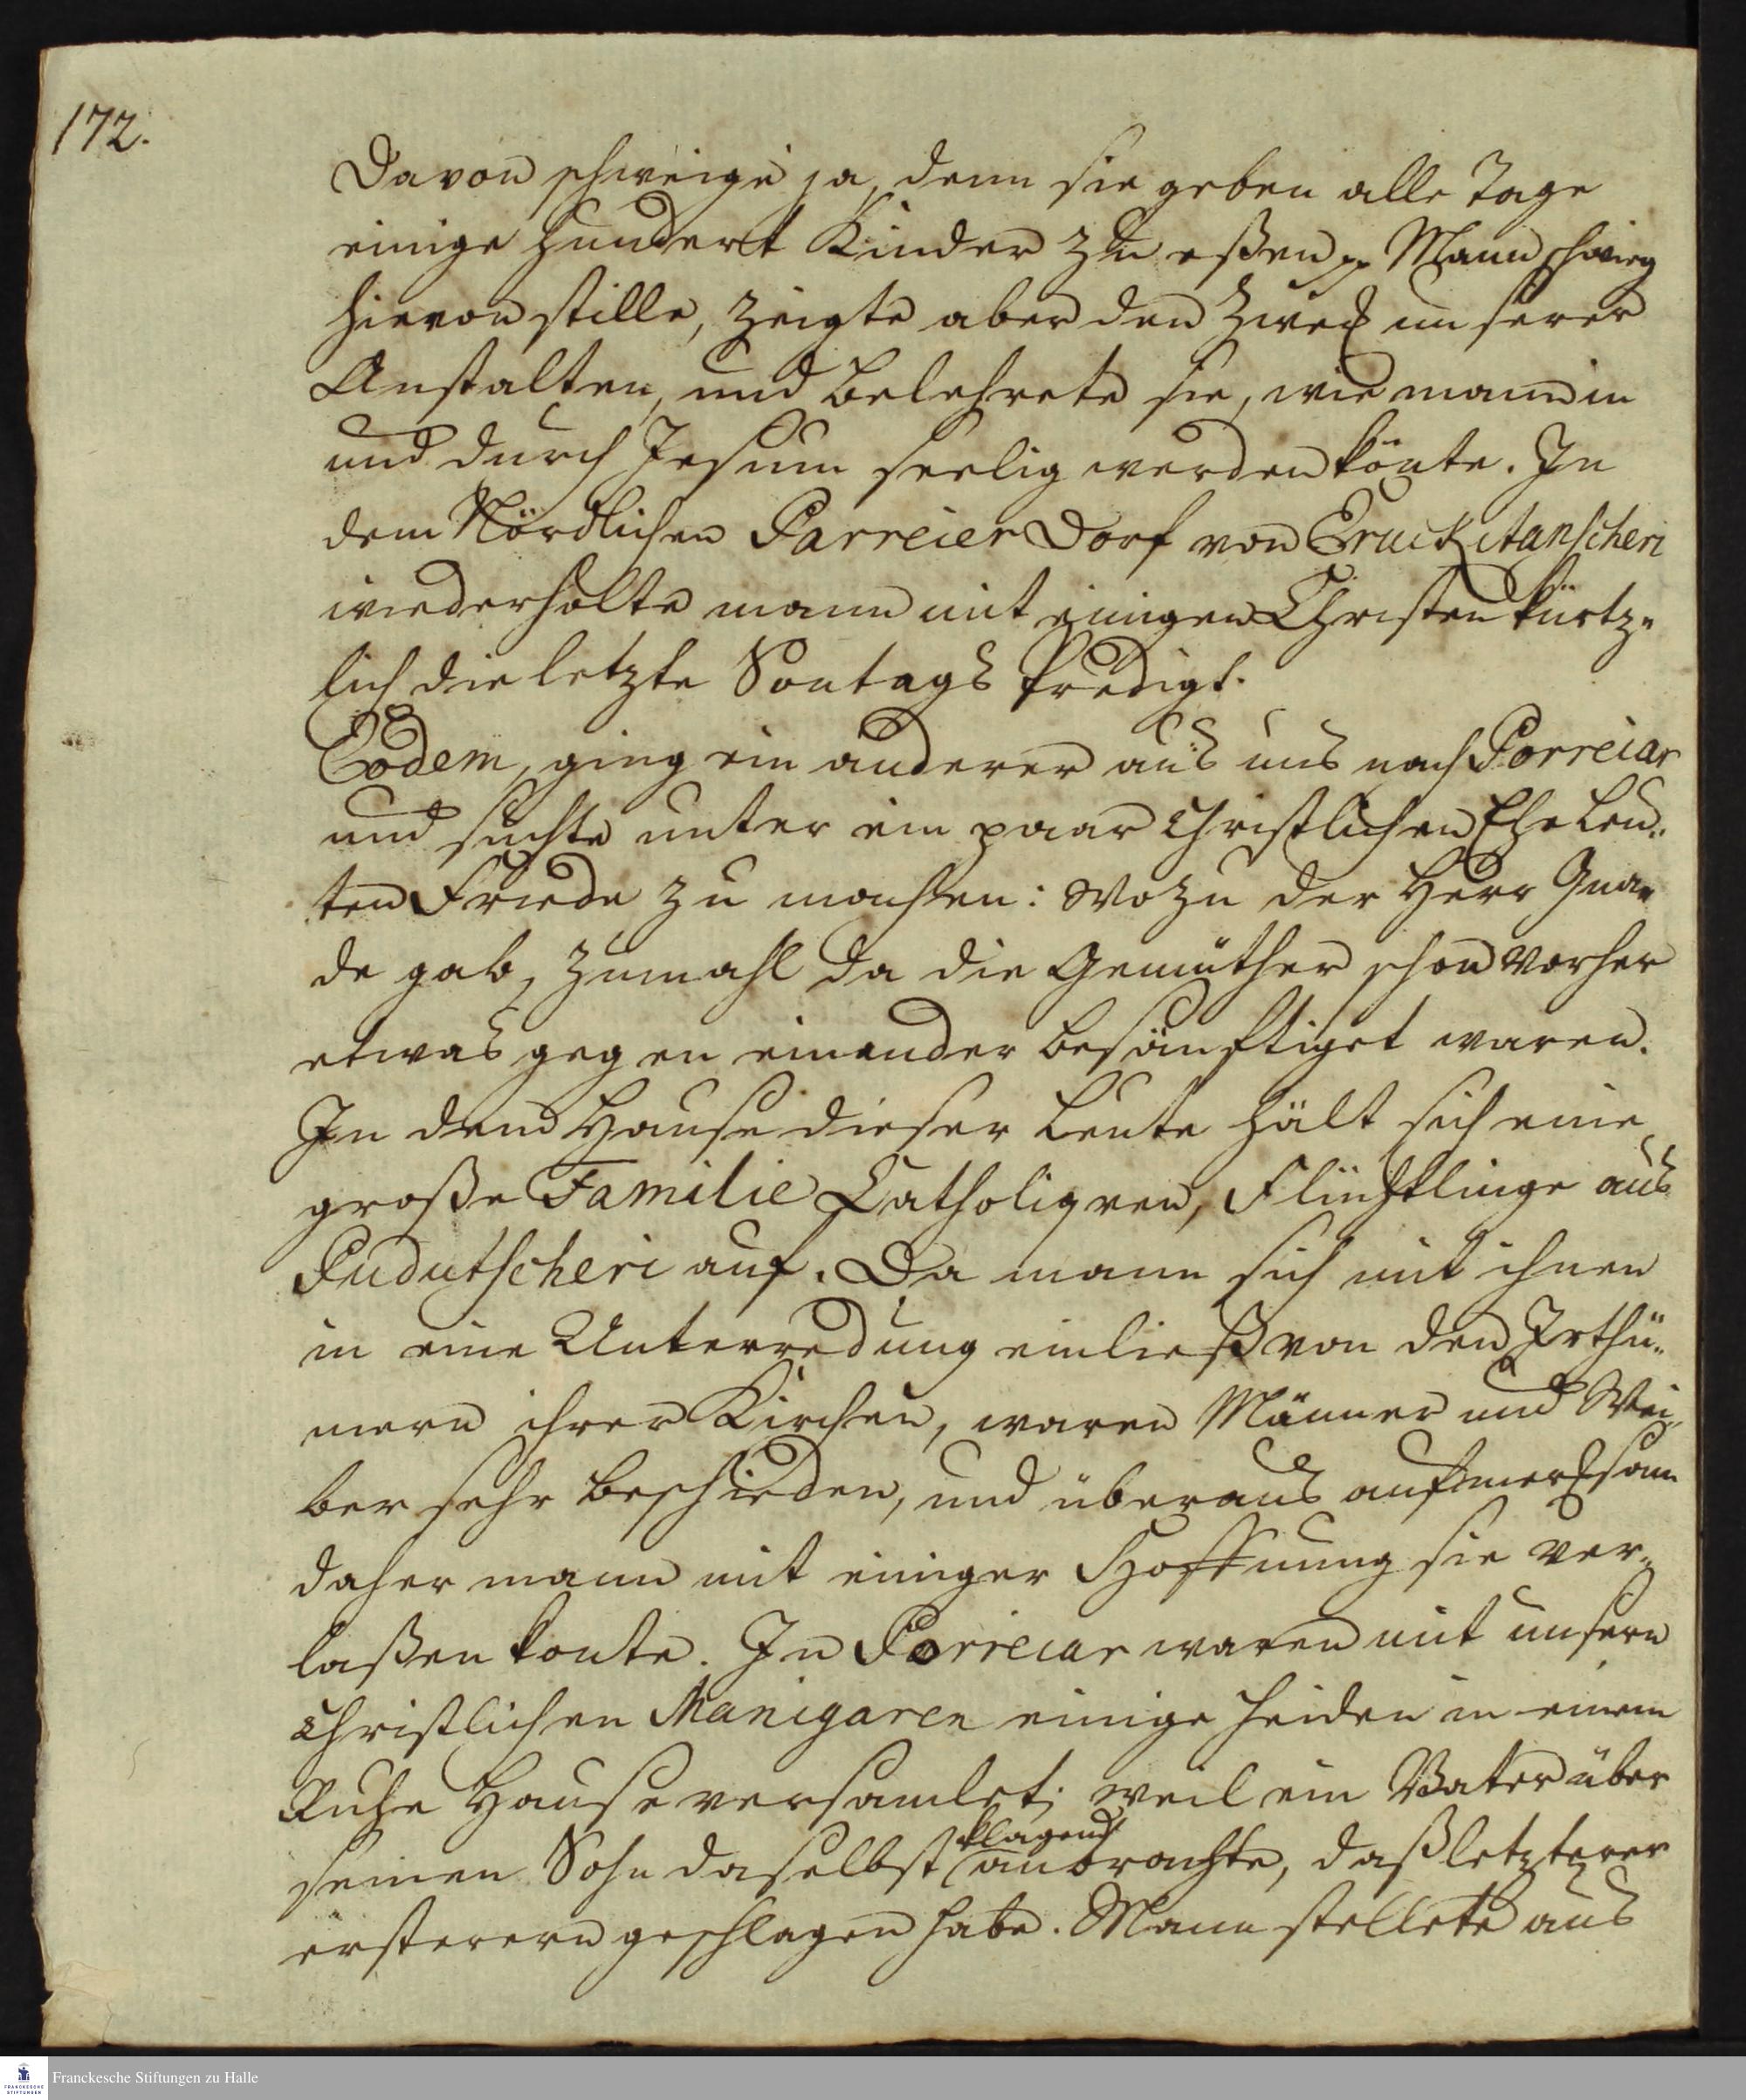 172.
Davon schweige ja, denn sie geben alle Tage
einige hundert Kinder zu eßen pp Mann schwieg
hievon stille, zeigte aber den Zweck unserer
Anstalten, und belehrete sie, wie mann in
und durch Jesum seelig werden könte. In
dem Nördlichen Parreier Dorf von Eruckitanscheri
wiederholte mann mit einigen Christen kürtz-
lich die letzte Sontags Predigt.
Eodem, ging ein anderer aus uns nach Porreiar
und suchte unter ein paar Christlichen Ehe Leu-
ten Friede zu machen: wozu der Herr Gna-
de gab, zumahl da die Gemüther schon vorher
etwas gegen einander besänftiget waren.
In dem Hause dieser Leute hält sich eine
große Familie Catholiquen, Flüchtlinge aus
Pudutscheri auf. Da mann sich mit ihnen
in eine Unterredung einließ von den Irthü-
mern ihrer Kirchen, waren Männer und Wei-
ber sehr bescheiden, und überaus aufmercksam
daher mann mit einiger Hoffnung sie ver-
laßen konte. In Porreiar waren mit unsern
Christlichen Manigaren einige Heiden in einem
Ruhe Hause versamlet; weil ein Vater über
klagend
seinen Sohn daselbst anbrachte, daß letzterer
ersterern geschlagen habe. Mann stellete aus
Franckesche Stiftungen zu Halle
FRANCKESCHE
STIFTUNGEN